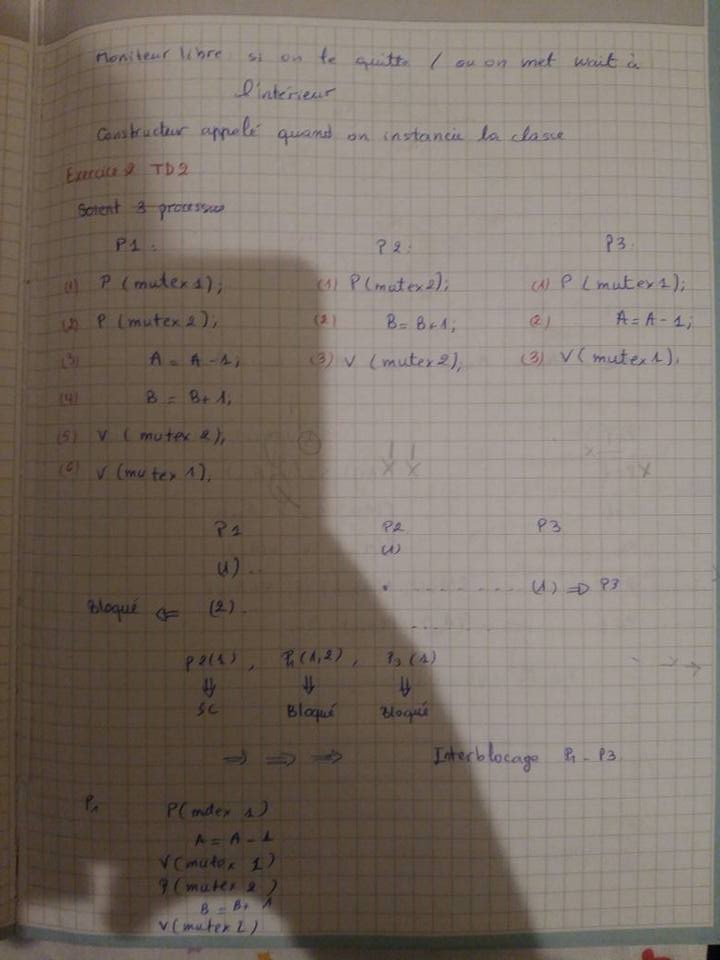 Moniteur libre si on le quitte / ou on met wait à
l'intérieur
Constructeur appelé quand on instancie la classe
Exercice 2 TD2
Soient 3 processus
P1 : P2 : P3 :
(1) P (mutex 1); (1) P(mutex 2); (1) P (mutex 1);
(2) P (mutex 2); (2) B = B+1; (2) A = A - 1;
(3) A = A - 1; (3) V (mutex 2); (3) V (mutex 1).
(4) B = B+1;
(5) V (mutex 2),
(6) V (mutex 1).
P1 P2 P3
(1)
(1) ..
. .......... (1) ⇒ P3
Bloqué ⇐ (2) .
P2(1) , P1 (1,2) , P3 (1)
⇓ ⇓ ⇓
SC Bloqué Bloqué
⇒ ⇒ ⇒ Interblocage P1 - P3
P1 P(mutex 1)
A = A - 1
V(mutex 1)
P(mutex 2)
B = B+ 1
V(mutex 2)